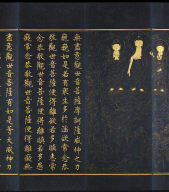 無盡意觀世音菩薩摩訶薩威神之力
巍巍如是若有衆生多於婬欲常念恭
敬觀世音菩薩便得離欲若多瞋恚常
念恭敬觀世音菩薩便得離瞋若多愚
癡常念恭敬觀世音菩薩便得離癡無
盡意觀世音菩薩有如是等大威神力